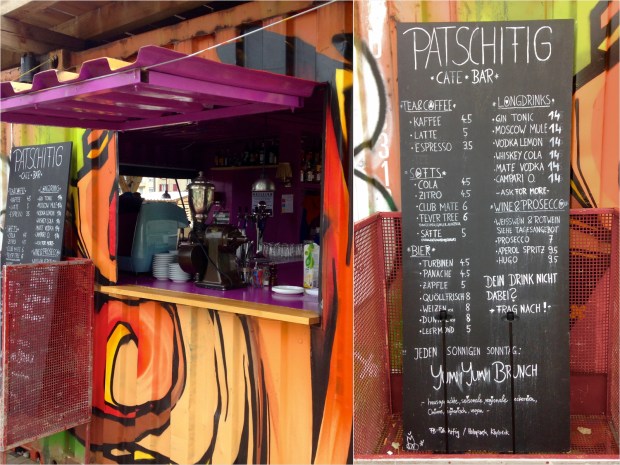 PATSCHIFIG
CAFE • BAR
TEA&COFFEE
KAFFEE 4.5
LATTE 5
ESPRESSO 3.5
SOFTS
COLA 4.5
ZITRO 4.5
CLUB MATE 6
FEVER TREE 6
SAFTE 5
BIER
TURBINEN 4.5
PANACHE 4.5
ZÄPFLE 5
QUÖLLFRISCH 8
WEIZEN 8
8
5
LONGDRINKS
GIN TONIC 14
MOSCOW MULE 14
VODKA LEMON 14
WHISKEY COLA 14
MATE VODKA 14
CAMPARI O 14
- ASK FOR MORE -
WINE&PROSECCO
WEISSWEIN & ROTWEIN
SIEHE TAGESANGBOT
PROSECCO 7
APEROL SPRITZ 9.5
HUGO 9.5
DEIN DRINK NICHT
DABEI?
FRAG NACH!
JEDEN SONNIGEN SONNTAG:
YUMYUM BRUNCH
saisonale, regionale
vegan
PATSCHIFIG
CAFE • BAR